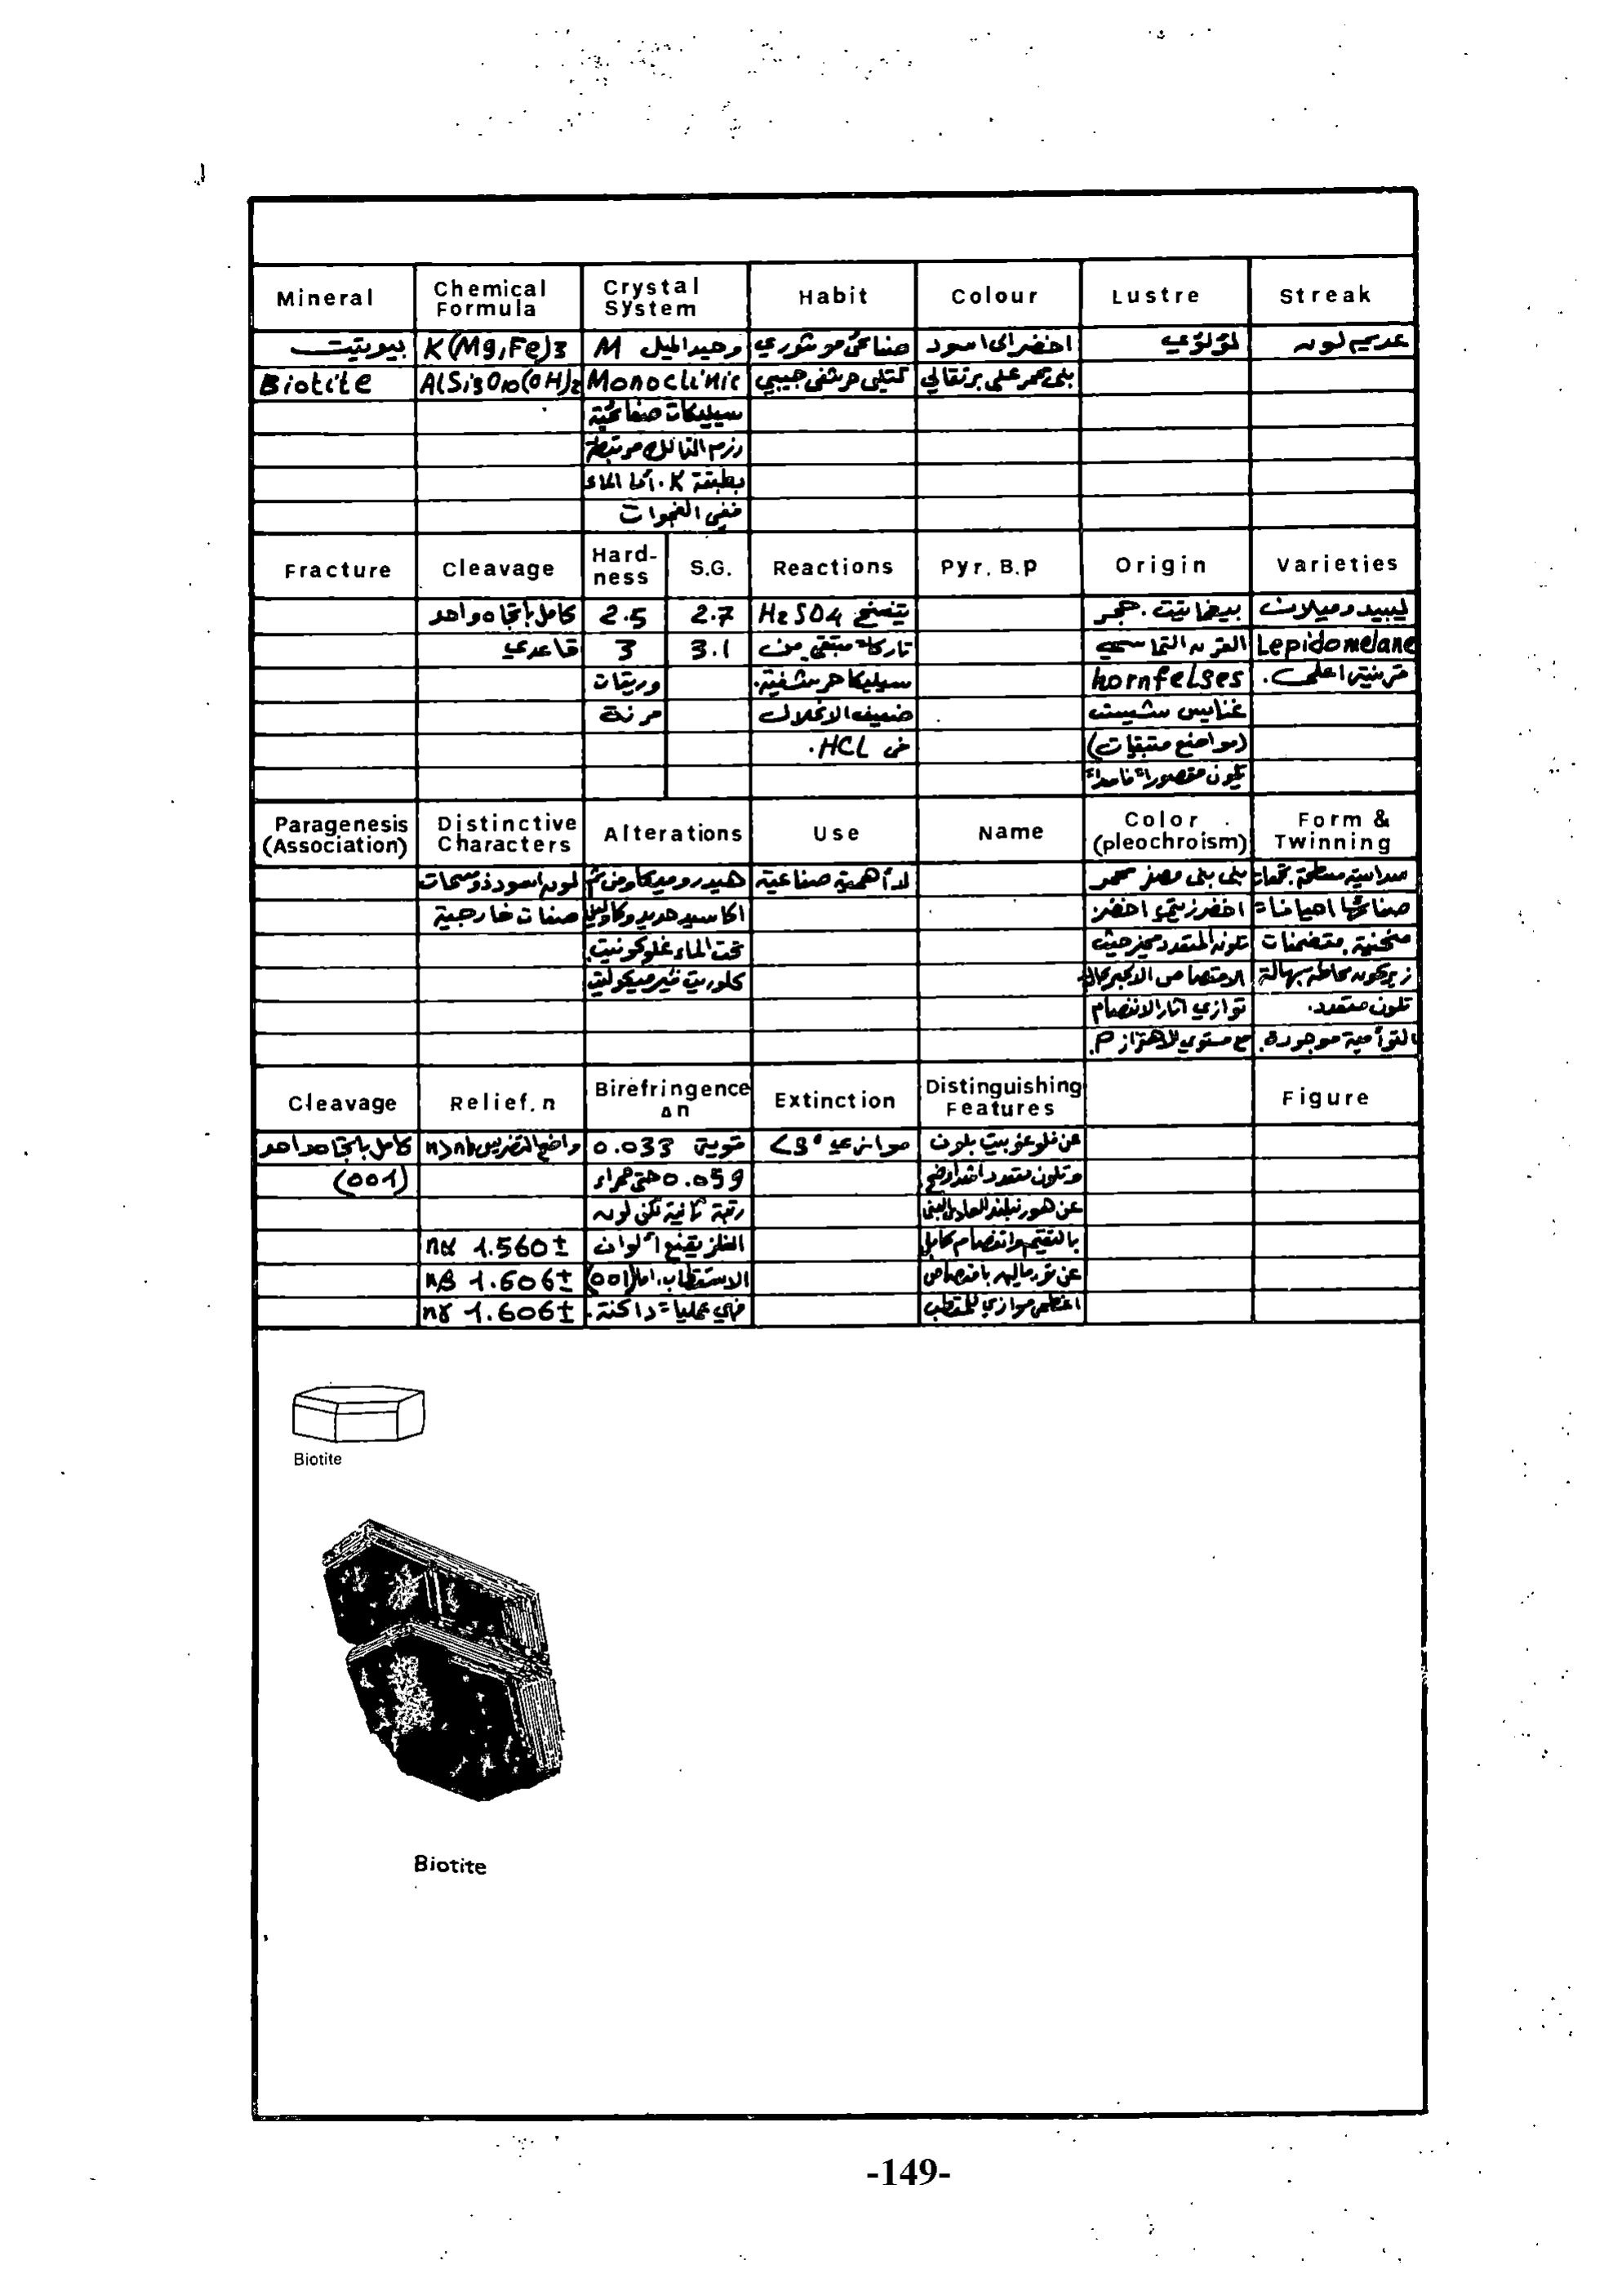 Mineral | Chemical Formula | Crystal System | Habit | Colour | Lustre | Streak
بيوتيت | K(Mg,Fe)3 | وحيد الميل M | صفائحي موشوري | اخضر الى اسود | لؤلؤي | عديم لون
Biotite | AlSi3O10(OH)2 | Monoclinic | كتلي حرشفي حبيبي | بني محمر على برتقالي
سيليكات صفائحية
رزم التالك مرتبطة
بطبقة K. أما الماء
ففي الفجوات
Fracture | Cleavage | Hard-ness | S.G. | Reactions | Pyr. B.p | Origin | Varieties
كامل باتجاه واحد | 2.5 | 2.7 | يتفسخ H2SO4 | بيغماتيت. حجر | ليبيدوميلان
قاعدي | 3 | 3.1 | تاركاً متبقي من | القرن التماسي | Lepidomelane
وريقات | سيليكا حرشفية. | hornfelses | قرينية اعلى.
مرنة | ضعيف الانحلال | غنايس شيست
في HCL. | (مواضع متبقيات)
يكون مقصوراً فاسداً
Paragenesis (Association) | Distinctive Characters | Alterations | Use | Name | Color (pleochroism) | Form & Twinning
لونه اسود ذو سمات | هيدروميكا ومن ثم | لا أهمية صناعية | بني بني مصفر محمر | سداسية مسطحة. تجمعات
صفات خارجية | اكاسيد حديد وكاولين | اخضر زيتي، اخضر. | صفائحها احياناً
تحت الماء غلوكونيت. | تلونه المتعدد مميز حيث | منحنية. متضمنات
كلوريت فيرميكوليت | الامتصاص الاكبر حال | زيركون محاطة بهالة
توازي آثار الانفصام | تلون متعدد.
مع مستوي الاهتزاز P. | التوأمية موجودة.
Cleavage | Relief. n | Birefringence Δn | Extinction | Distinguishing Features | Figure
كامل باتجاه واحد | واضح التضريس n>nb | قوية 0.033 | موازي <3° | عن فلوغوبيت بلون
(001) | 0.059 حتى حمراء | وتلون متعدد اشد اوضح
رتبة ثانية لكن لون | عن هورنبلند العادي البني
nα 1.560± | الفلز يقنع ألوان | بالتقييم وانفصام كامل
nβ 1.606± | الاستقطاب. اما (001) | عن تورمالين بامتصاص
nγ 1.606± | فهي عملياً داكنة. | اعظمي موازي للمقطب
Biotite
Biotite
-149-